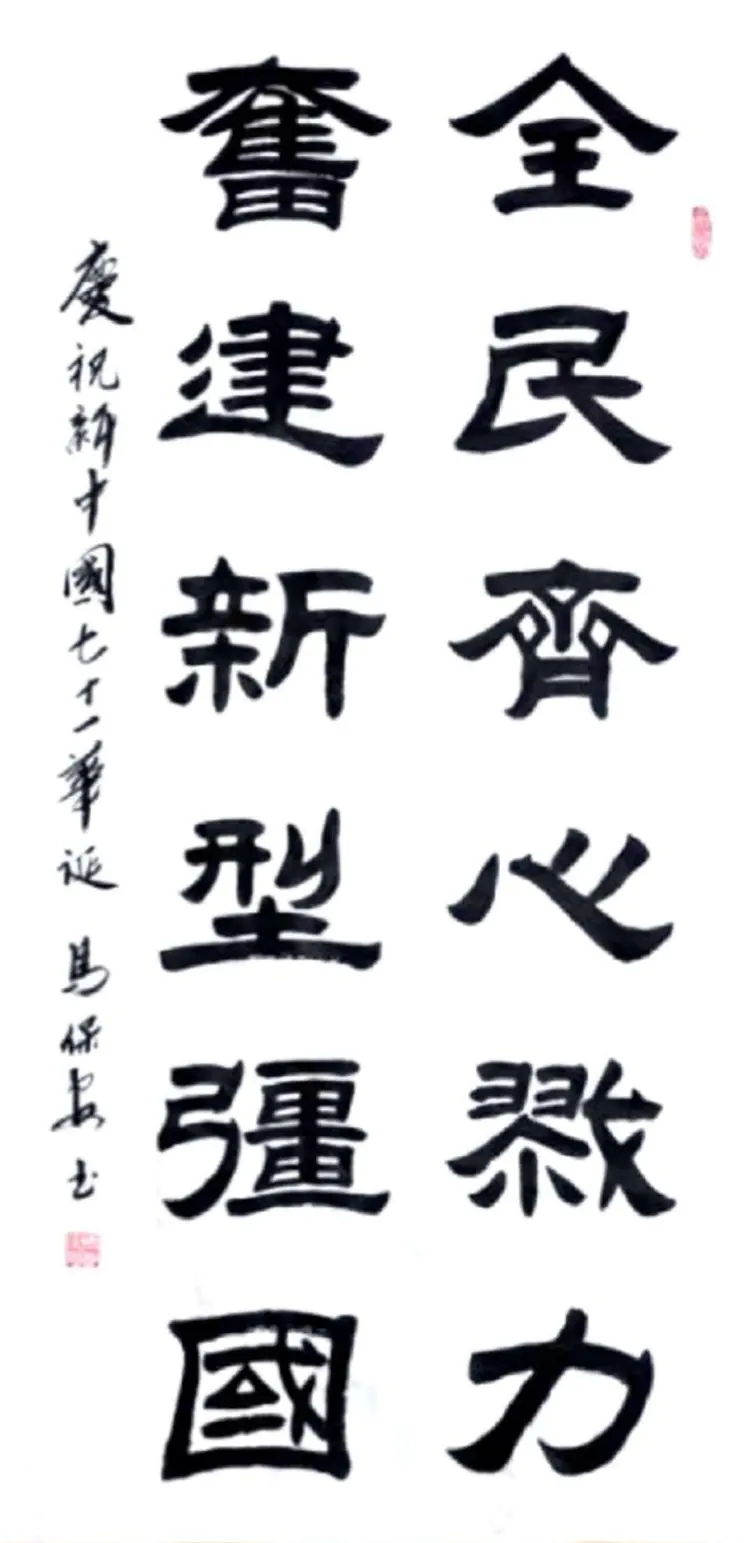 全民齊心戮力
奮建新型彊國
慶祝新中國七十一華诞 馬保安书